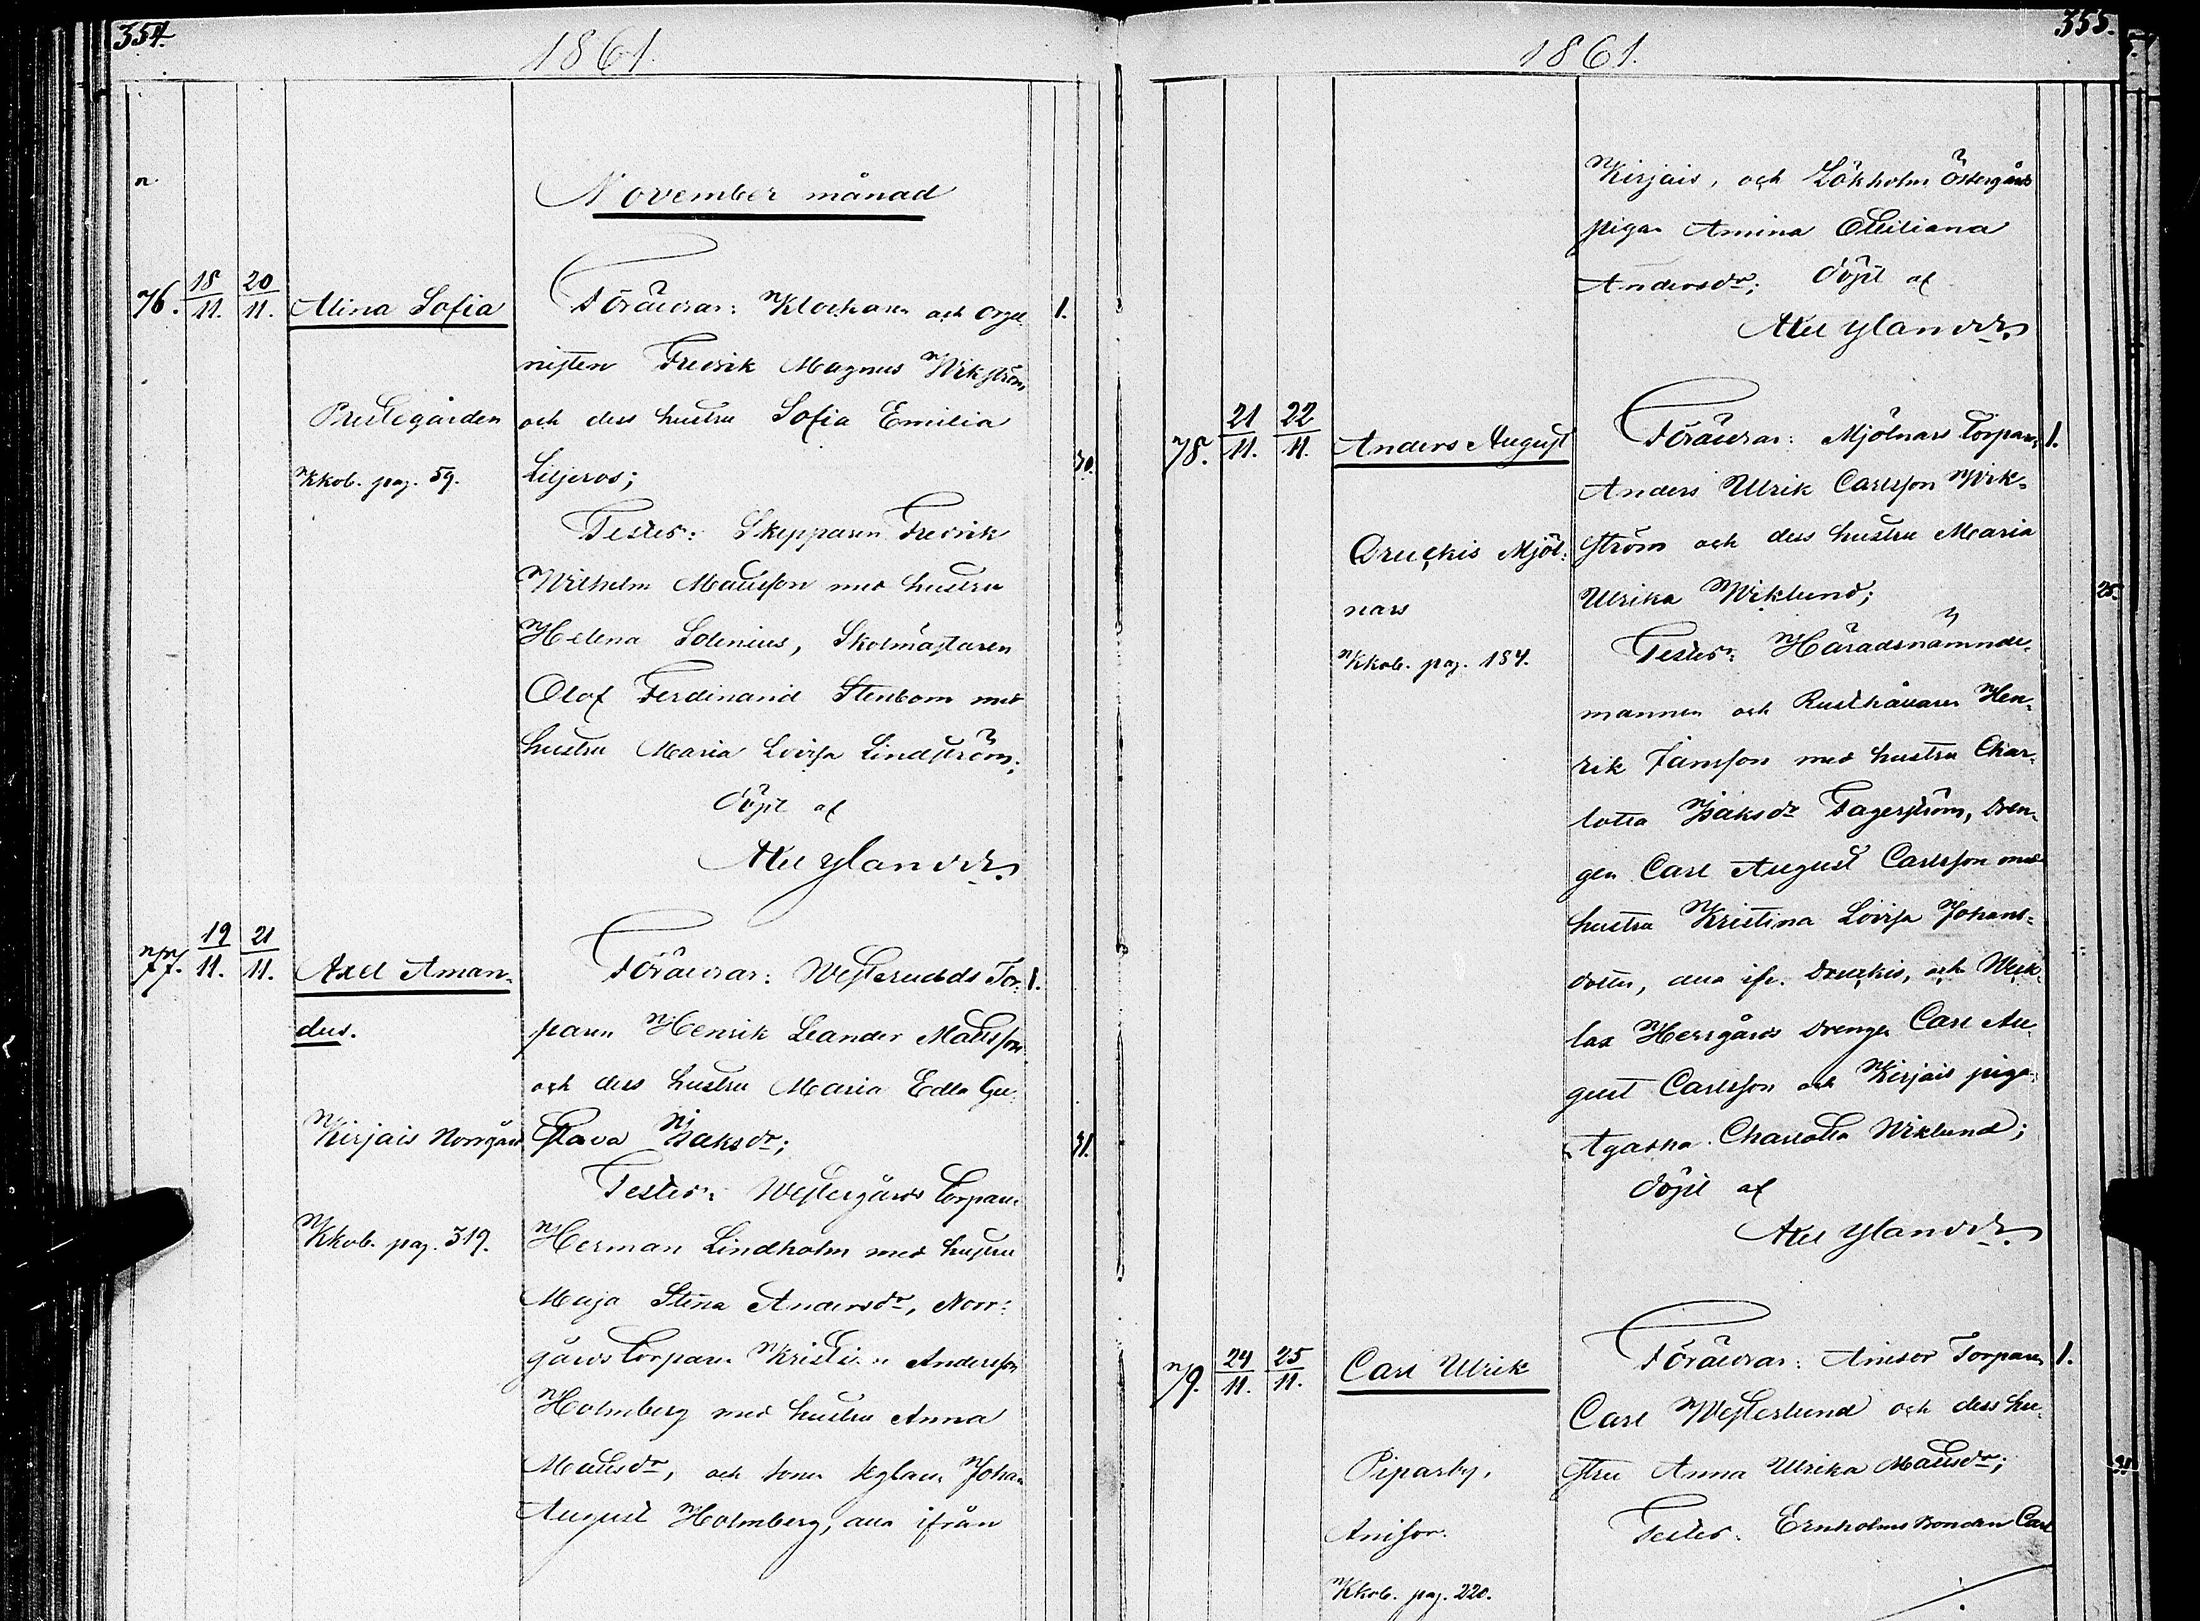 354.
1861.
November månad
76. 18/11. 20/11. Alina Sofia
Prestegården
Kkob. pag. 59.
Föräldrar: Klockaren och orga- 1.
nisten Fredrik Magnus Wikström
och dess hustru Sofia Emilia
Liljeros; 30.
Testes: Skepparen Fredrik
Wilhelm Mattsson med hustru
Helena Solenius, Skolmästaren
Olof Ferdinand Stenbom med
hustru Maria Lovisa Lindström;
döpt af
Axel Ylander.
77. 19/11. 21/11. Axel Aman-
dus.
Kirjais Norrgård
Kkob. pag. 319.
Föräldrar: Westerudds Tor- 1.
paren Henrik Leander Mattsson
och dess hustru Maria Edla Gu-
stava Isaksdr; 31.
Testes: Westergårds torparen
Herman Lindholm med hustru
Maja Stina Andersdr, Norr-
gårds torparen Kristian Andersson
Holmberg med hustru Anna
Mattsdr, och sonen Johan
August Holmberg, alla ifrån
355.
1861.
Kirjais, och Lökholm Östergårds
pigan Amina Otiliana
Andersdr; döpt af
Axel Ylander.
78. 21/11. 22/11. Anders August
Druckis Mjöl-
nars
Kkob. pag. 184.
Föräldrar: Mjölnars torparen 1.
Anders Ulrik Carlsson Wik-
ström och dess hustru Maria
Ulrika Wiklund; 25.
Testes: Häradsnämnde-
mannen och Rusthållaren Hen-
rik Jansson med hustru Char-
lotta Isaksdr Fagerström, Dren-
gen Carl August Carlsson med
hustru Kristina Lovisa Johans-
dotter, alla ifr. Druckis, och Wäck-
lax Herrgårds drengen Carl Au-
gust Carlsson och Kirjais pigan
Agatha Charlotta Wiklund;
döpt af
Axel Ylander.
79. 24/11. 25/11. Carl Ulrik
Piparby,
Anisor.
Kkob. pag. 220.
Föräldrar: Anisor Torparen 1.
Carl Westerlund och dess hu-
stru Anna Ulrika Mattsdr;
Testes: Ernholms Bonden Carl